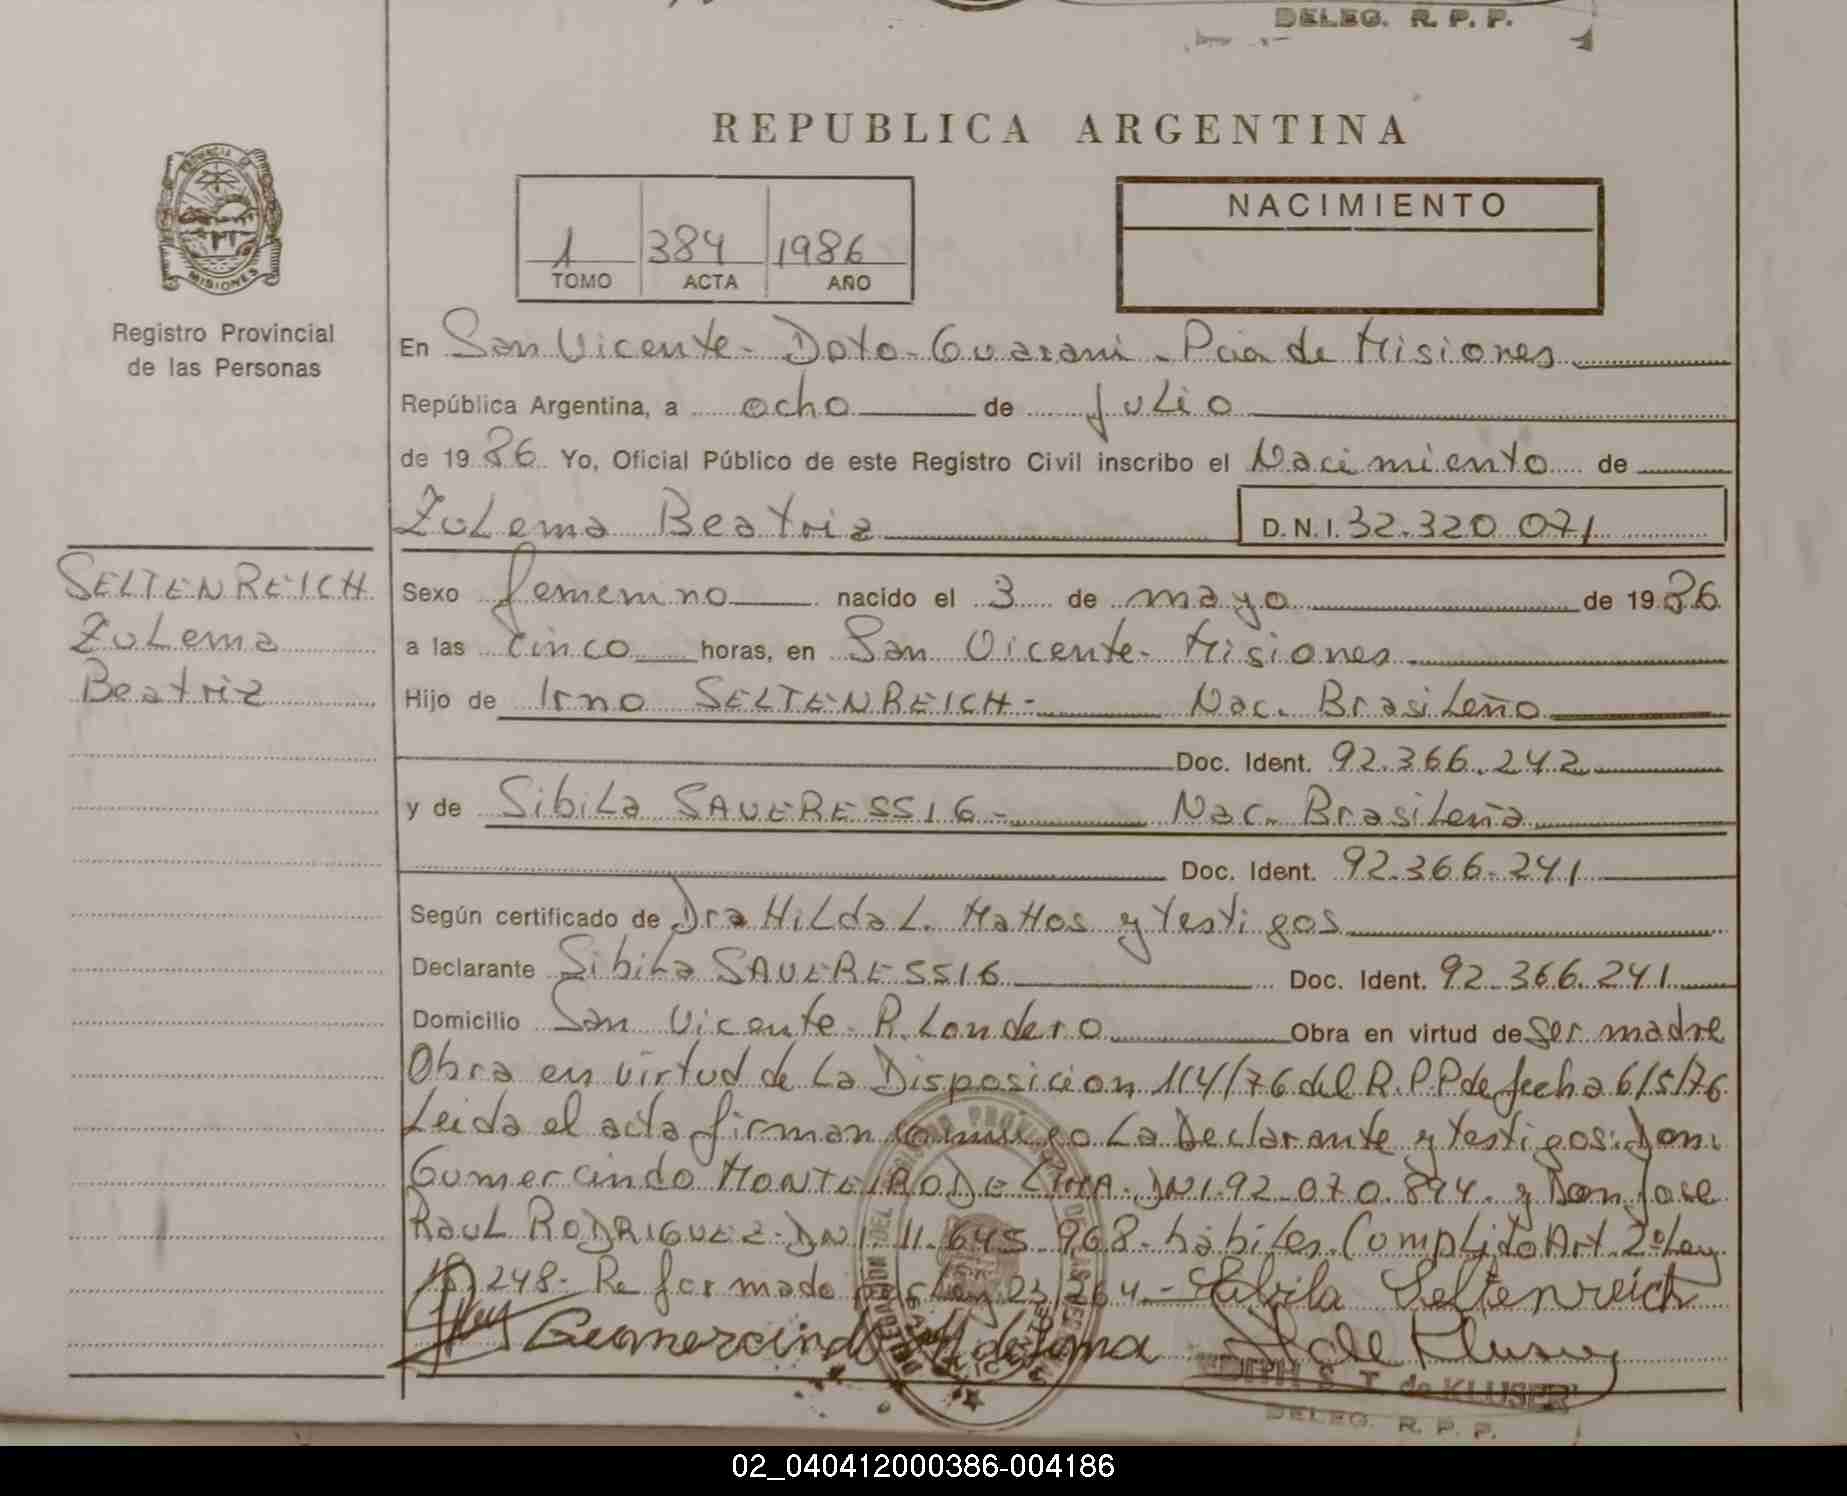 DELEG. R. P. P.
REPUBLICA ARGENTINA
PROVINCIA DE
MISIONES
Registro Provincial
de las Personas
1 384 1986
TOMO ACTA AÑO
NACIMIENTO
En San Vicente - Dpto - Guarani - Pcia de Misiones
República Argentina, a ocho de julio
de 1986 Yo, Oficial Público de este Registro Civil inscribo el Nacimiento de
Zulema Beatriz D.N.I. 32.320.071
SELTENREICH
Zulema
Beatriz
Sexo femenino nacido el 3 de mayo de 1986
a las cinco horas, en San Vicente - Misiones
Hijo de Irno SELTENREICH - Nac. Brasileño
Doc. Ident. 92.366.242
y de Sibila SAUERESSIG - Nac. Brasileña
Doc. Ident. 92.366.241
Según certificado de Dra Hilda L. Mattos y testigos
Declarante Sibila SAUERESSIG Doc. Ident. 92.366.241
Domicilio San Vicente - P. Londero Obra en virtud de ser madre
Obra en virtud de la Disposicion 114/76 del R.P.P de fecha 6/5/76
Leida el acta firman conmigo la Declarante y testigos: Don:
Gumercindo MONTEIRO DE LIMA - DNI. 92.070.894. y Don Jose
RAUL RODRIGUEZ - DNI 11.645.968 - habiles. Complido Art. 2º Ley
18.248 - Reformado por Ley 23.264. - Sibila Seltenreich
Gumercindo M de Lima
EDITH S. T. de KLUSER
DELEG. R. P. P.
02_040412000386-004186